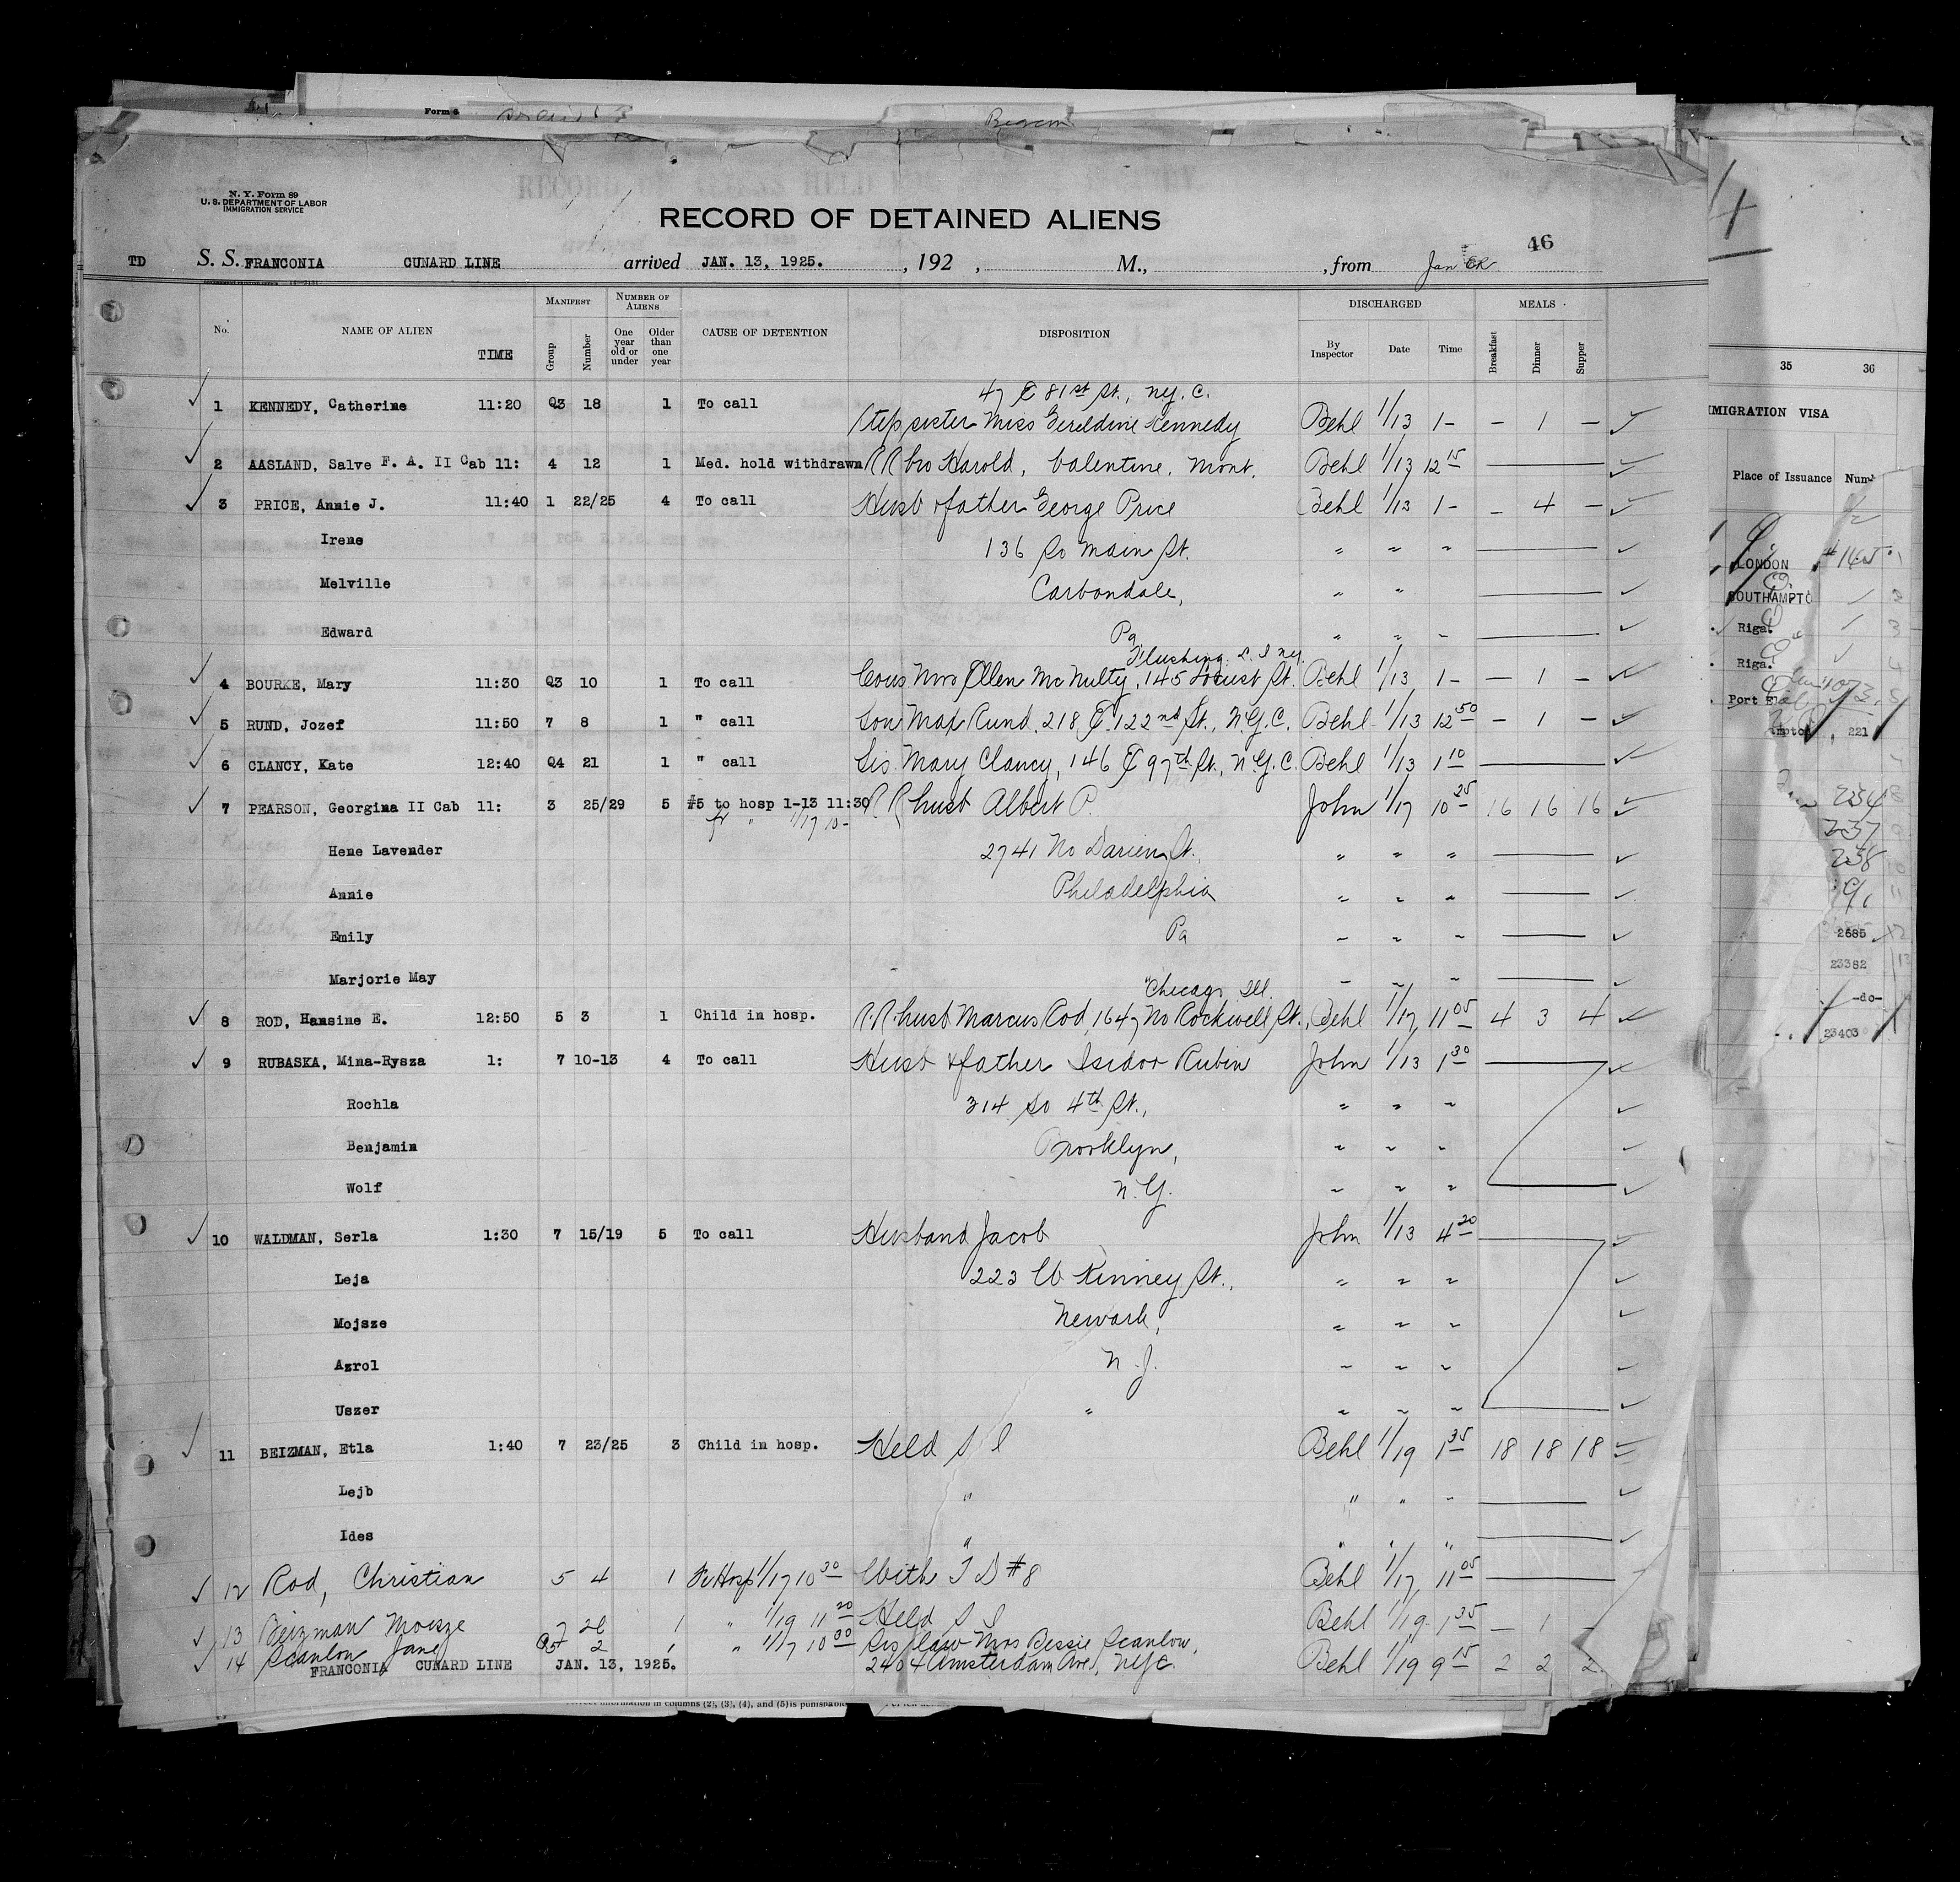 Form 6
N. Y. Form 89
U. S. DEPARTMENT OF LABOR
IMMIGRATION SERVICE
RECORD OF DETAINED ALIENS
46
TD S. S. FRANCONIA CUNARD LINE arrived JAN. 13, 1925. , 192 , M., , from
No. NAME OF ALIEN TIME MANIFEST Group Number NUMBER OF ALIENS One year old or under Older than one year CAUSE OF DETENTION DISPOSITION DISCHARGED By Inspector Date Time MEALS Breakfast Dinner Supper
47 E 81st St., N.Y.C.
1 KENNEDY, Catherine 11:20 Q3 18 1 To call Stepsister Miss Gereldine Kennedy Behl 1/13 1- - 1 -
2 AASLAND, Salve F. A. II Cab 11: 4 12 1 Med. hold withdrawn RR bro Harold, Valentine, Mont. Behl 1/13 12 15
3 PRICE, Annie J. 11:40 1 22/25 4 To call Husb & father George Price Behl 1/13 1- - 4 -
Irene 136 So Main St. " " "
Melville Carbondale, " "
Edward Pa " " "
Flushing L. I. N.Y.
4 BOURKE, Mary 11:30 Q3 10 1 To call Cous Mrs Ellen McNulty, 145 Locust St. Behl 1/13 1- - 1 -
5 RUND, Jozef 11:50 7 8 1 " call Son Max Rund, 218 E 122nd St., N.Y.C. Behl 1/13 12 50 - 1 -
6 CLANCY, Kate 12:40 Q4 21 1 " call Sis Mary Clancy, 146 E 97th St., N.Y.C. Behl 1/13 1 10
7 PEARSON, Georgina II Cab 11: 3 25/29 5 #5 to hosp 1-13 11:30 R.R husb Albert P. John 1/17 10 25 16 16 16
fr " 1/17 10-
Hene Lavender 2741 No Darien St., " " "
Annie Philadelphia " " "
Emily Pa " " "
Marjorie May " " "
Chicago Ill.
8 ROD, Hansine E. 12:50 5 3 1 Child in hosp. R.R husb Marcus Rod, 1647 No Rockwell St., Behl 1/17 11 05 4 3 4
9 RUBASKA, Mina-Rysza 1: 7 10-13 4 To call Husb & father Isidor Rubin John 1/13 1 30
Rochla 314 So 4th St., " " "
Benjamin Brooklyn, " " "
Wolf N.Y. " " "
10 WALDMAN, Serla 1:30 7 15/19 5 To call Husband Jacob John 1/13 4 20
Leja 223 W Kinney St., " " "
Mojsze Newark, " " "
Azrol N. J. " " "
Uszer " " " "
11 BEIZMAN, Etla 1:40 7 23/25 3 Child in hosp. Held S I Behl 1/19 1 35 18 18 18
Lejb " " " "
Ides " " " "
12 Rod, Christian 5 4 1 Fr Hosp 1/17 10 30 With T D #8 Behl 1/17 11 05
13 Beizman Moisze 7 26 1 " 1/19 11 20 Held S I Behl 1/19 1 35 - 1 -
14 Scanlon Jane Q5 2 1 " 1/17 10 00 Sis in law Mrs Bessie Scanlon,
FRANCONIA CUNARD LINE JAN. 13, 1925. 2404 Amsterdam Ave, NYC. Behl 1/19 9 15 2 2 2
correct information in columns (2), (3), (4), and (5) is punishable
35 36
MIGRATION VISA
Place of Issuance
LONDON
SOUTHAMPTO
Riga.
Riga.
Port
221
234
237
238
2685
23382
-do-
23403